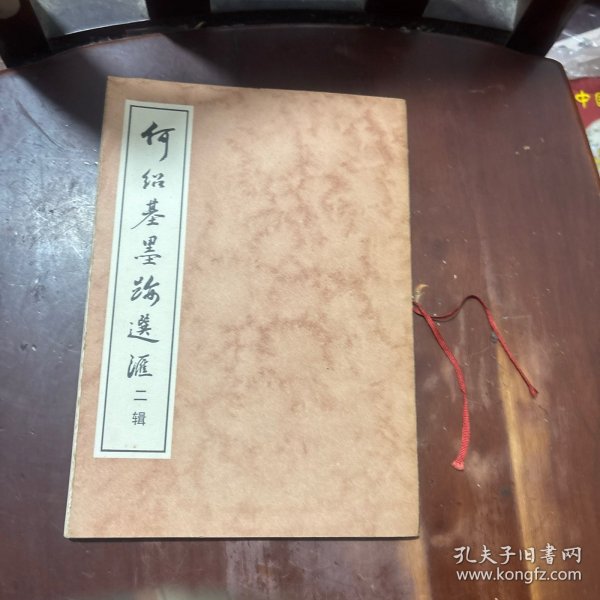 何绍基墨迹選滙二辑
中国
孔夫子旧書网
www.kongfz.com